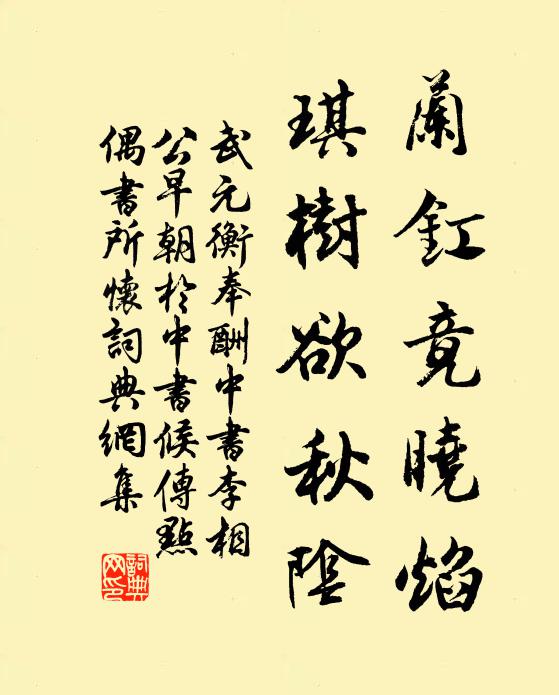 蘭釭竟曉焰
琪樹欲秋陰
武元衡奉酬中書李相
公早朝於中書候傳點
偶書所懷詞典網集
詞典
网印